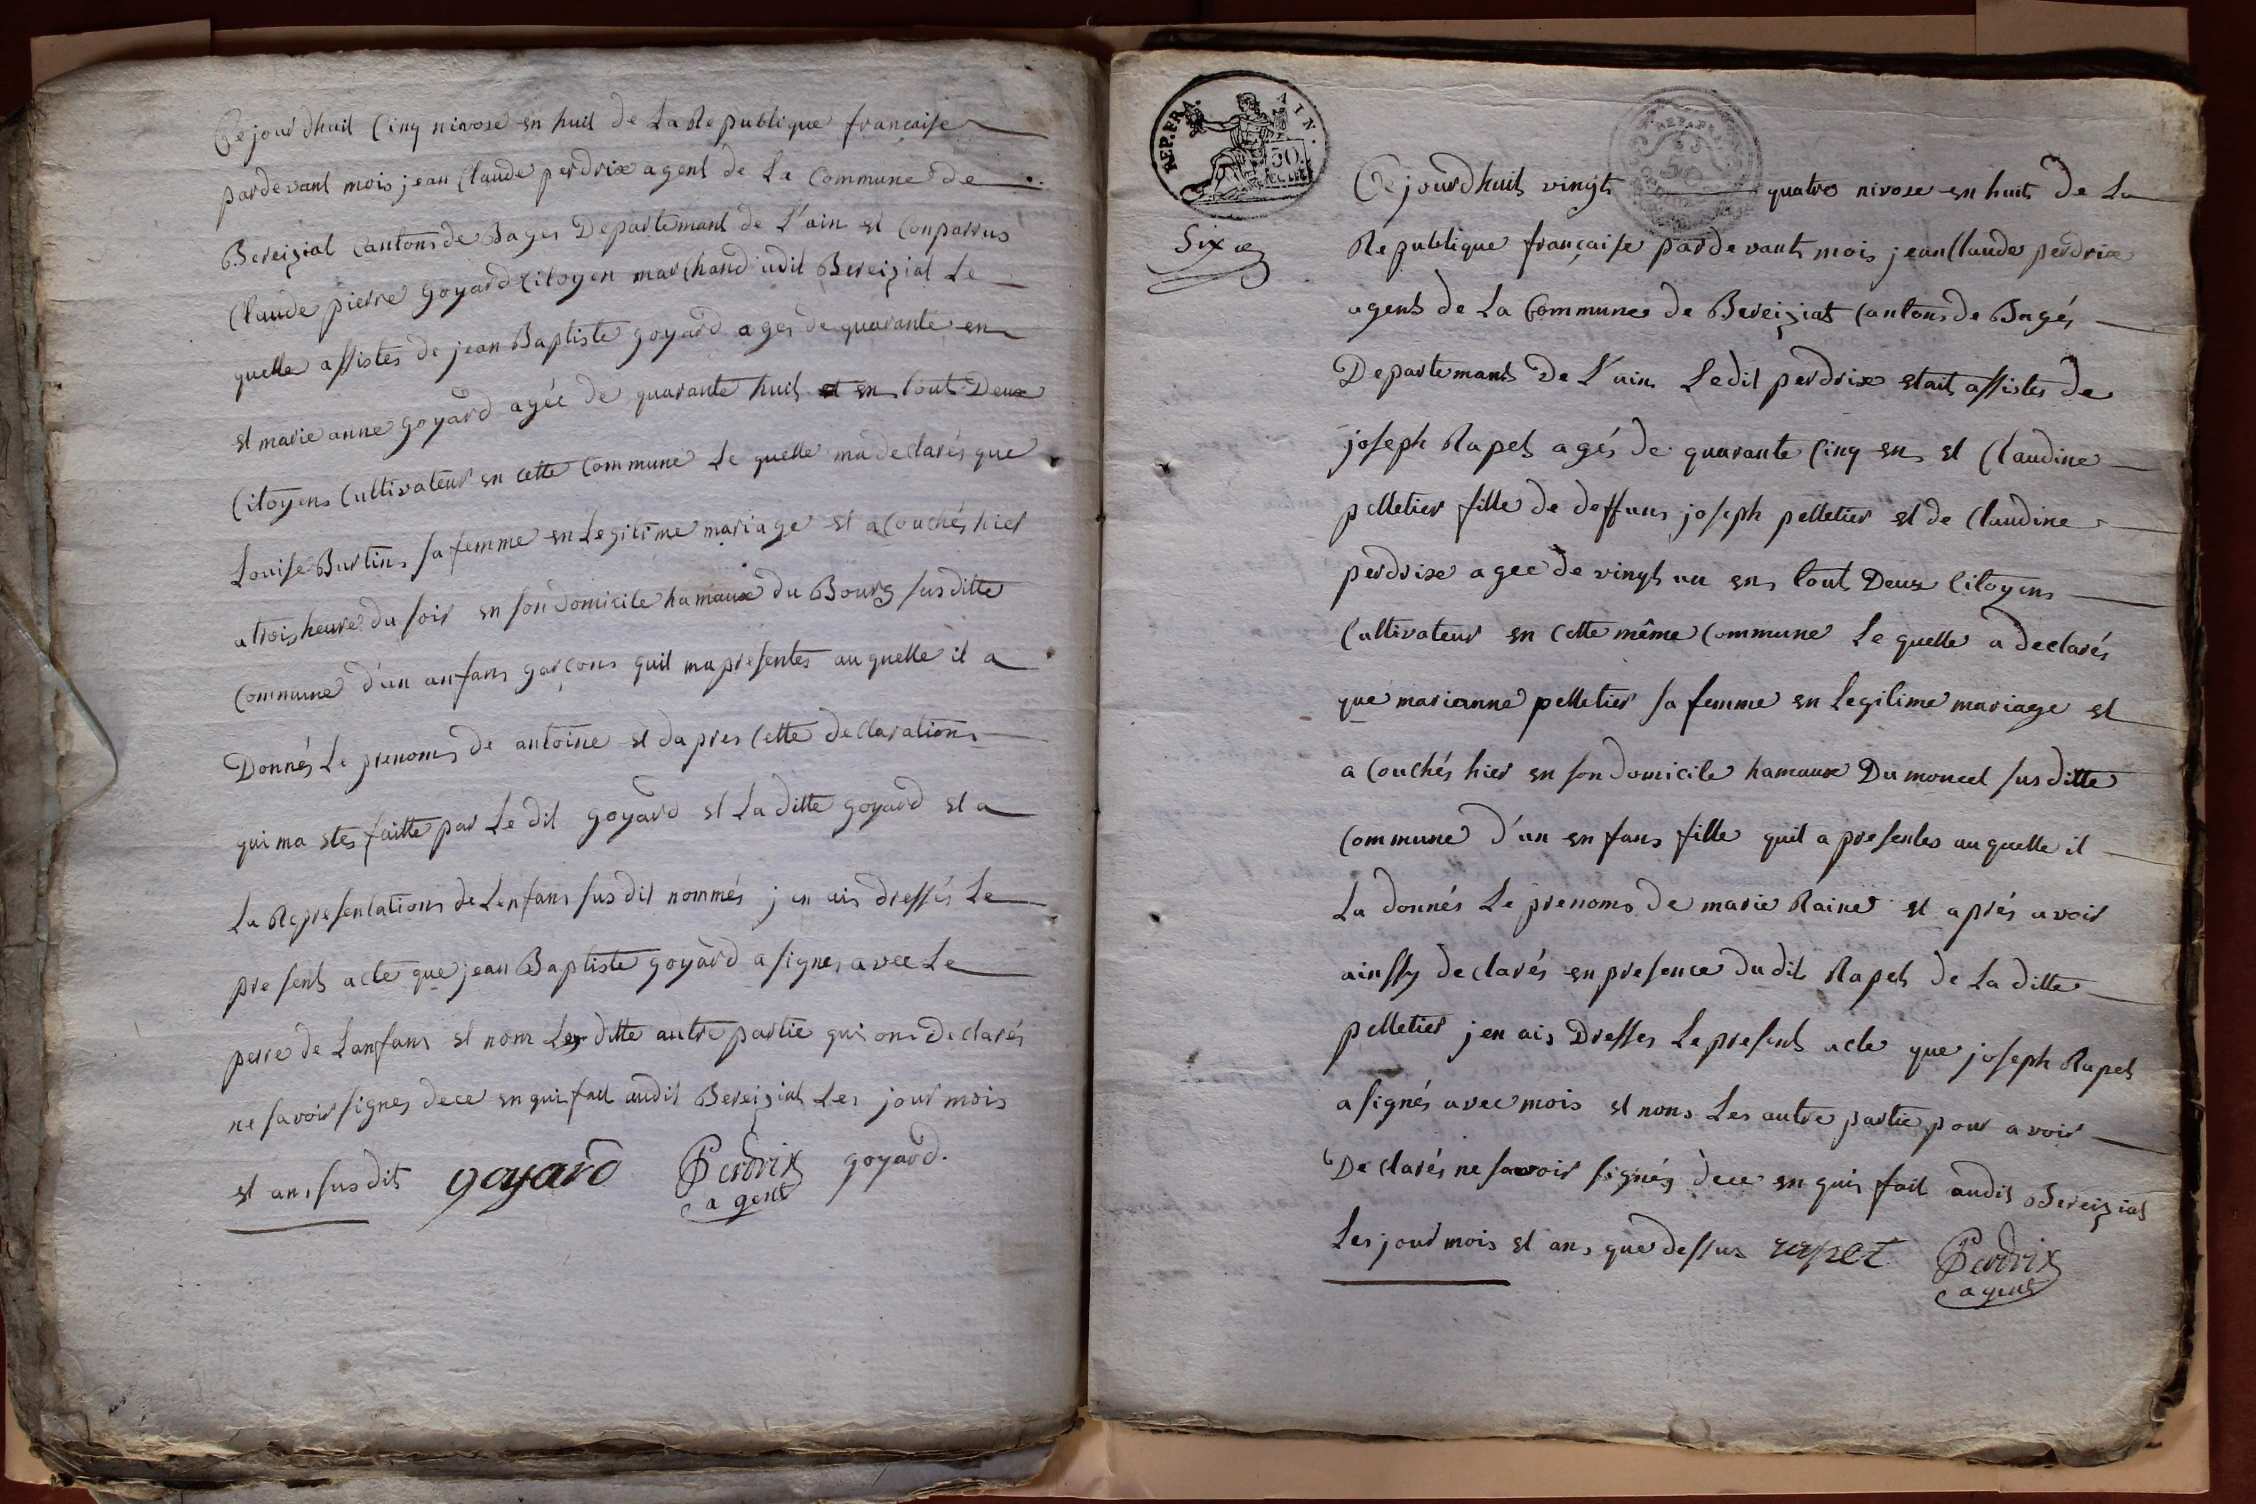 Ce jourdhuit Cinq nivose en huit de La Republique francaise
pardevant mois jean Claude perdrix agent de La Commune de
Bereizial Cantons de Bages Departemant de L'ain et Conparrus
Claude pierre goyard Citoyen marchand udit Bereizial Le
quelle assistes de jean Baptiste goyard ages de quarante en
et marie anne goyard agée de quarante huit en tout Deux
Citoyens Cultivateur en cette Commune Le quelle ma declarés que
Louise Burtin sa femme en Legitime mariage et acouchés hier
a trois heure du soir en son domicile hamaux du Bourg susditte
Commune d'un anfans garçons quil ma presentes auquelle il a
Donnés Le prenoms de antoine et dapres Cette declarations
qui ma etes faitte par Le dit goyard et La ditte goyard et a
La Representations de Lenfans susdit nommés jen ais dressés Le
present acte que jean Baptiste goyard a signes avec Le
perre de Lanfans et nom Les ditte autre partie qui ons declarés
ne savoir signes dece en quis fait audit Bereizial Les jour mois
et ans susdit goyard Perdrix goyard.
agent
REP. FRA. AIN.
50.
CENT.
REP. FRA
50
Six
Ce jourdhuit vingt quatre nivose en huit de La
Republique française pardevant mois jean Claude perdrix
agent de La Commune de Bereiziat Cantons de Bagés
Departemant de L'ain Ledit perdrix etait assistes de
joseph Rapet agés de quarante Cinq ens et Claudine
pelletier fille de deffuns joseph pelletier et de Claudine
perdrix agée de vingt un ens tout Deux Citoyens
Cultivateur en Cette même Commune Le quelle a declarés
que marianne pelletier sa femme en Legitime mariage et
a Couchés hier en son domicile hamaux Du moncel susditte
Commune d'un enfans fille quil a presentes auquelle il
La donnés Le prenoms de marie Raine et aprés avoir
ainssy declarés en presence dudit Rapet de La ditte
pelletier jen ais Dresses Le present acte que joseph Rapet
a signés avec mois et nons Les autre partie pour avoir
Declarés ne savoir signés dece en quis fait audit Bereiziat
Les jour mois et ans que dessus rapet Perdrix
agent